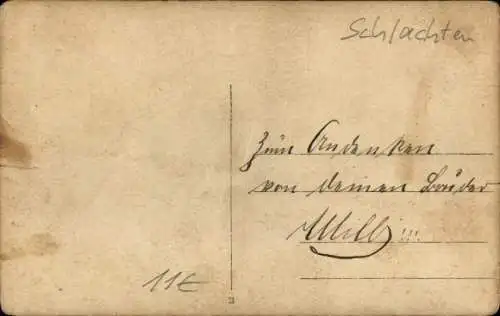 Schlachten
Zum Andenken
von deinen Brüder
Willi!!!
11€